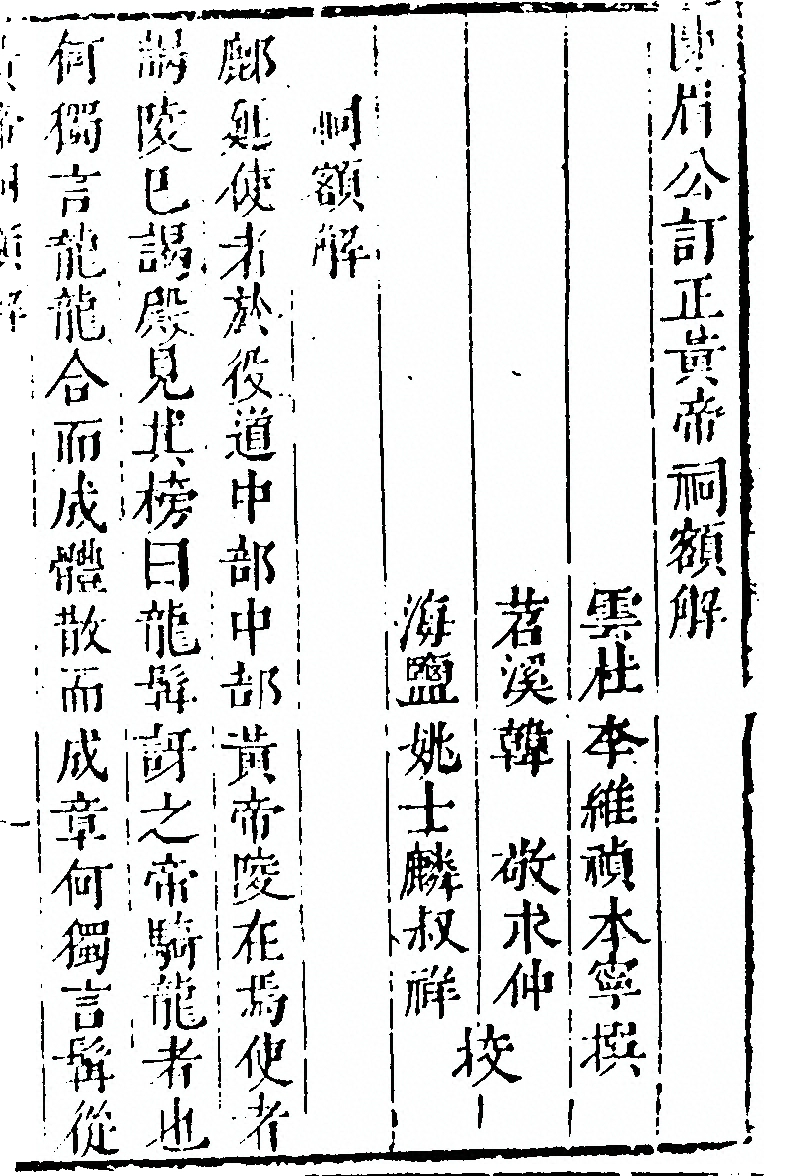 陳眉公訂正黃帝祠額解
雲杜李維禎本寧撰
苕溪韓 敬求仲
海鹽姚士麟叔祥
校
祠額解
鄜延使者於役道中部中部黃帝陵在焉使者
謁陵已謁殿見其榜曰龍髯訝之帝騎龍者也
何獨言龍龍合而成體散而成章何獨言髯從
黃帝祠額解
一